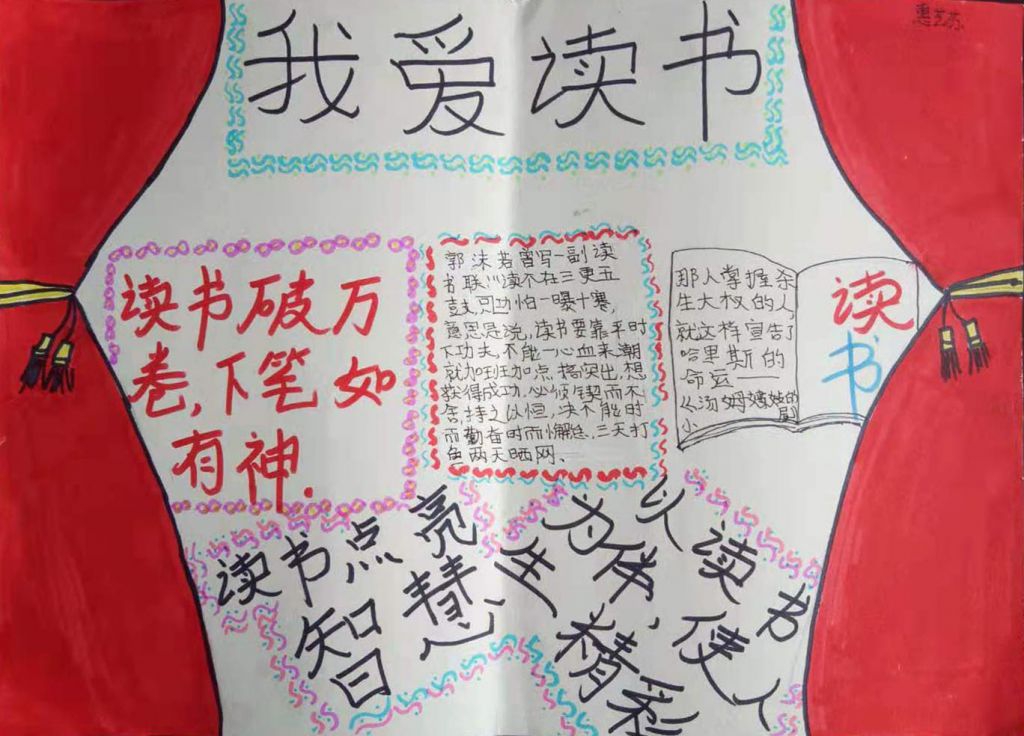 我爱读书
读书破万
卷,下笔如
有神.
郭沫若曾写一副读
书联《读不在三更五
鼓,功怕一曝十寒,
意思是说,读书要靠平时
下功夫,不能一心血来潮
就加班加点,搞突出,想
获得成功,必须锲而不
舍,持之以恒,决不能时
而勤奋时而懈怠,三天打
鱼两天晒网、
那人掌握杀
生大权的人,
就这样宣告了
哈里斯的
命运——
《汤姆的
小屋
读
书
读书点亮
智慧
以读书
为伴,使人
生精彩